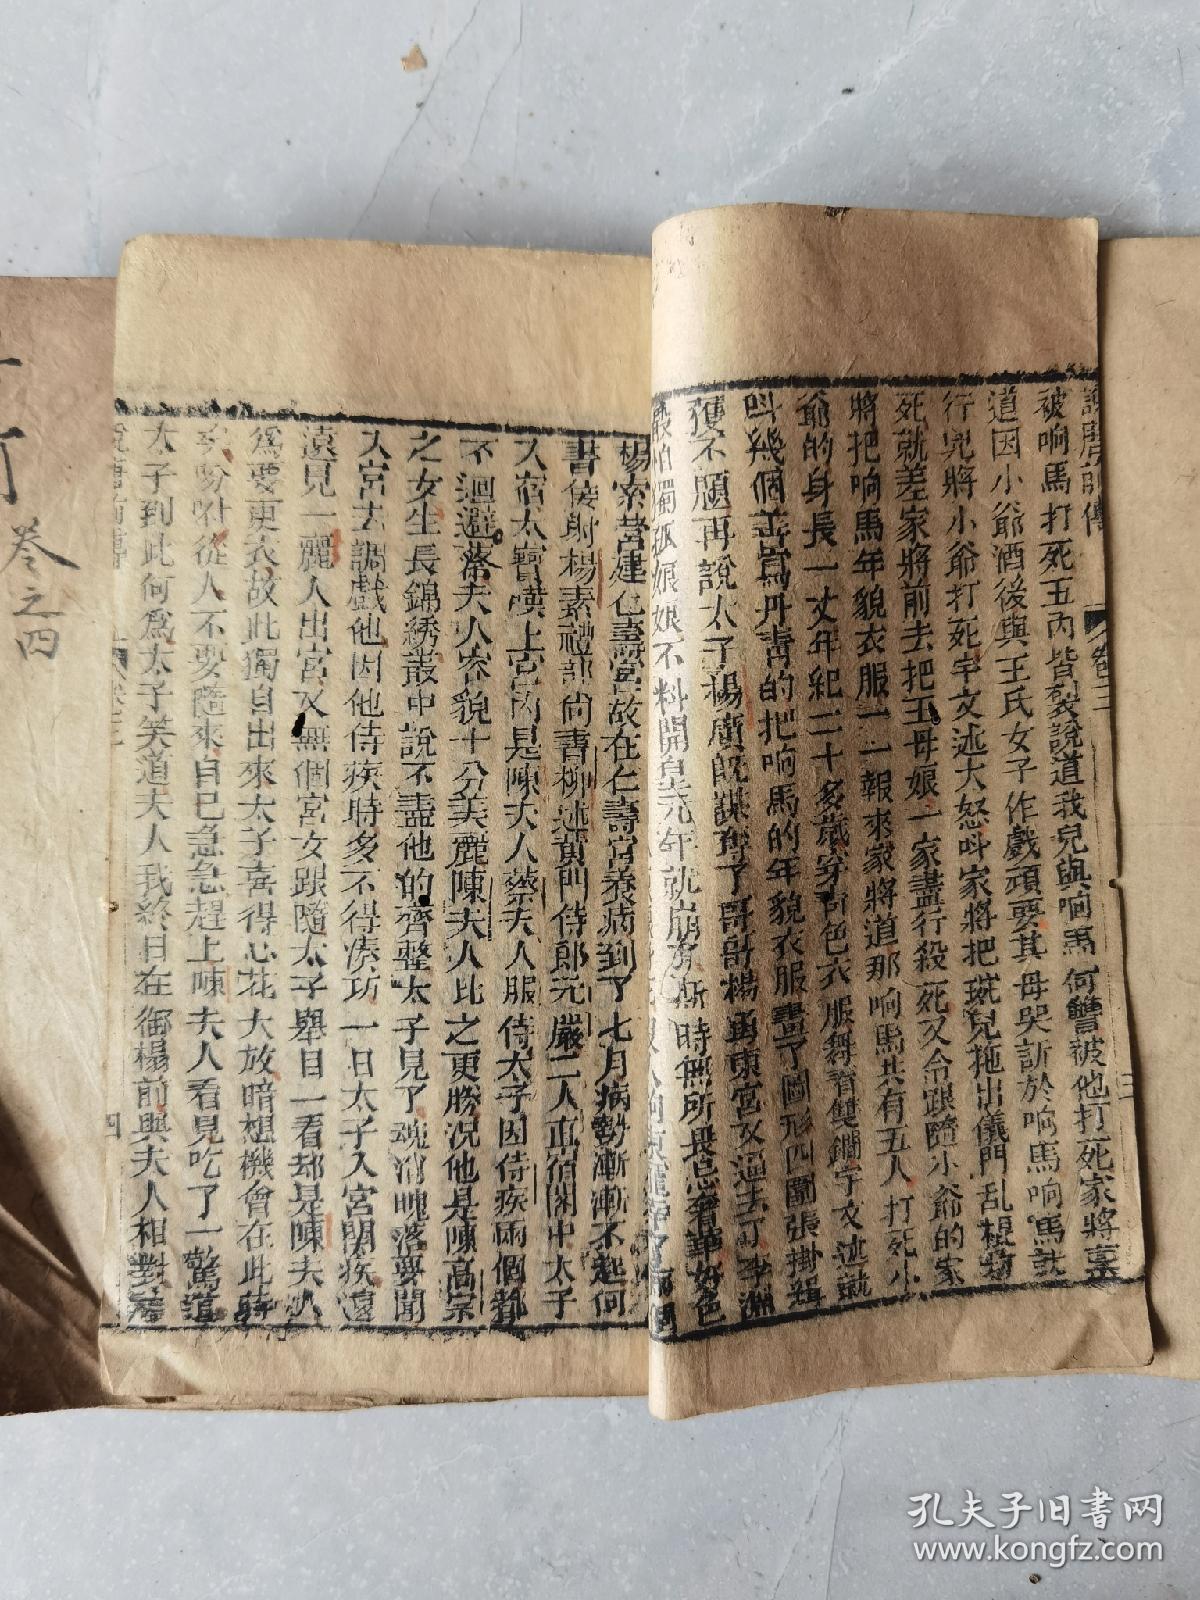 說唐前傳 卷三 三
被响馬打死五內皆裂說道我兒與响馬何讐被他打死家將稟
道因小爺酒後與王氏女子作戲頑耍其母哭訴於响馬响馬就
行兇將小爺打死宇文述大怒呌家將把琥兒拖出儀門乱棍打
死就差家將前去把王母娘一家盡行殺死又令跟隨小爺的家
將把响馬年貌衣服一一報來家將道那响馬共有五人打死小
爺的身長一丈年紀二十多歲穿青色衣服舞着雙鐧宇文述就
呌幾個善寫丹青的把响馬的年貌衣服畫了圖形四圍張掛緝
獲不題再說太子楊廣既謀奪了哥哥楊勇東宮又逼去了李淵
最怕獨孤娘娘不料開皇元年就崩了斯時無所畏忌奢華好色
楊素營建仁壽宮故在仁壽宮養病到了七月病勢漸漸不起何
書僕射楊素禮部尚書柳述黃門侍郎元嚴二人直宿閣中太子
入宿太寶殿上宮內是陳夫人蔡夫人服侍太子因侍疾兩個都
不迴避蔡夫人容貌十分美麗陳夫人比之更勝況他是陳高宗
之女生長錦綉叢中說不盡他的齊整太子見了魂消魄落要闖
入宮去調戲他因他侍疾時多不得湊功一日太子入宮問疾遠
遠見一麗人出宮又無個宮女跟隨太子舉目一看却是陳夫人
爲要更衣故此獨自出來太子喜得心花大放暗想機會在此時
矣吩咐從人不要隨來自己急急趕上陳夫人看見吃了一驚道
太子到此何爲太子笑道夫人我終日在御榻前與夫人相對
說唐前傳 卷三 四
卷之四
孔夫子旧书网
www.kongfz.com